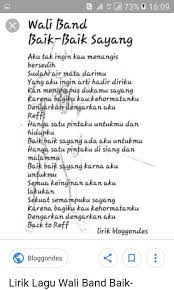 73% 16:09
Wali Band
Baik-Baik Sayang
Aku tak ingin kau menangis
bersedih
Sudahi air mata darimu
Yang aku ingin arti hadir diriku
Kan menghapus dukamu sayang
Karena bagiku kau kehormatanku
Dengarkan dengarkan aku
Reff
Hanya satu pintaku untukmu dan
hidupku
Baik baik sayang ada aku untukmu
Hanya satu pintaku di siang dan
malammu
Baik baik sayang karna aku
untukmu
Semua keinginan akan aku
lakukan
Sekuat semampuku sayang
Karena bagiku kau kehormatanku
Dengarkan dengarkan aku
Back to Reff
lirik bloggondes
Bloggondes
Lirik Lagu Wali Band Baik-